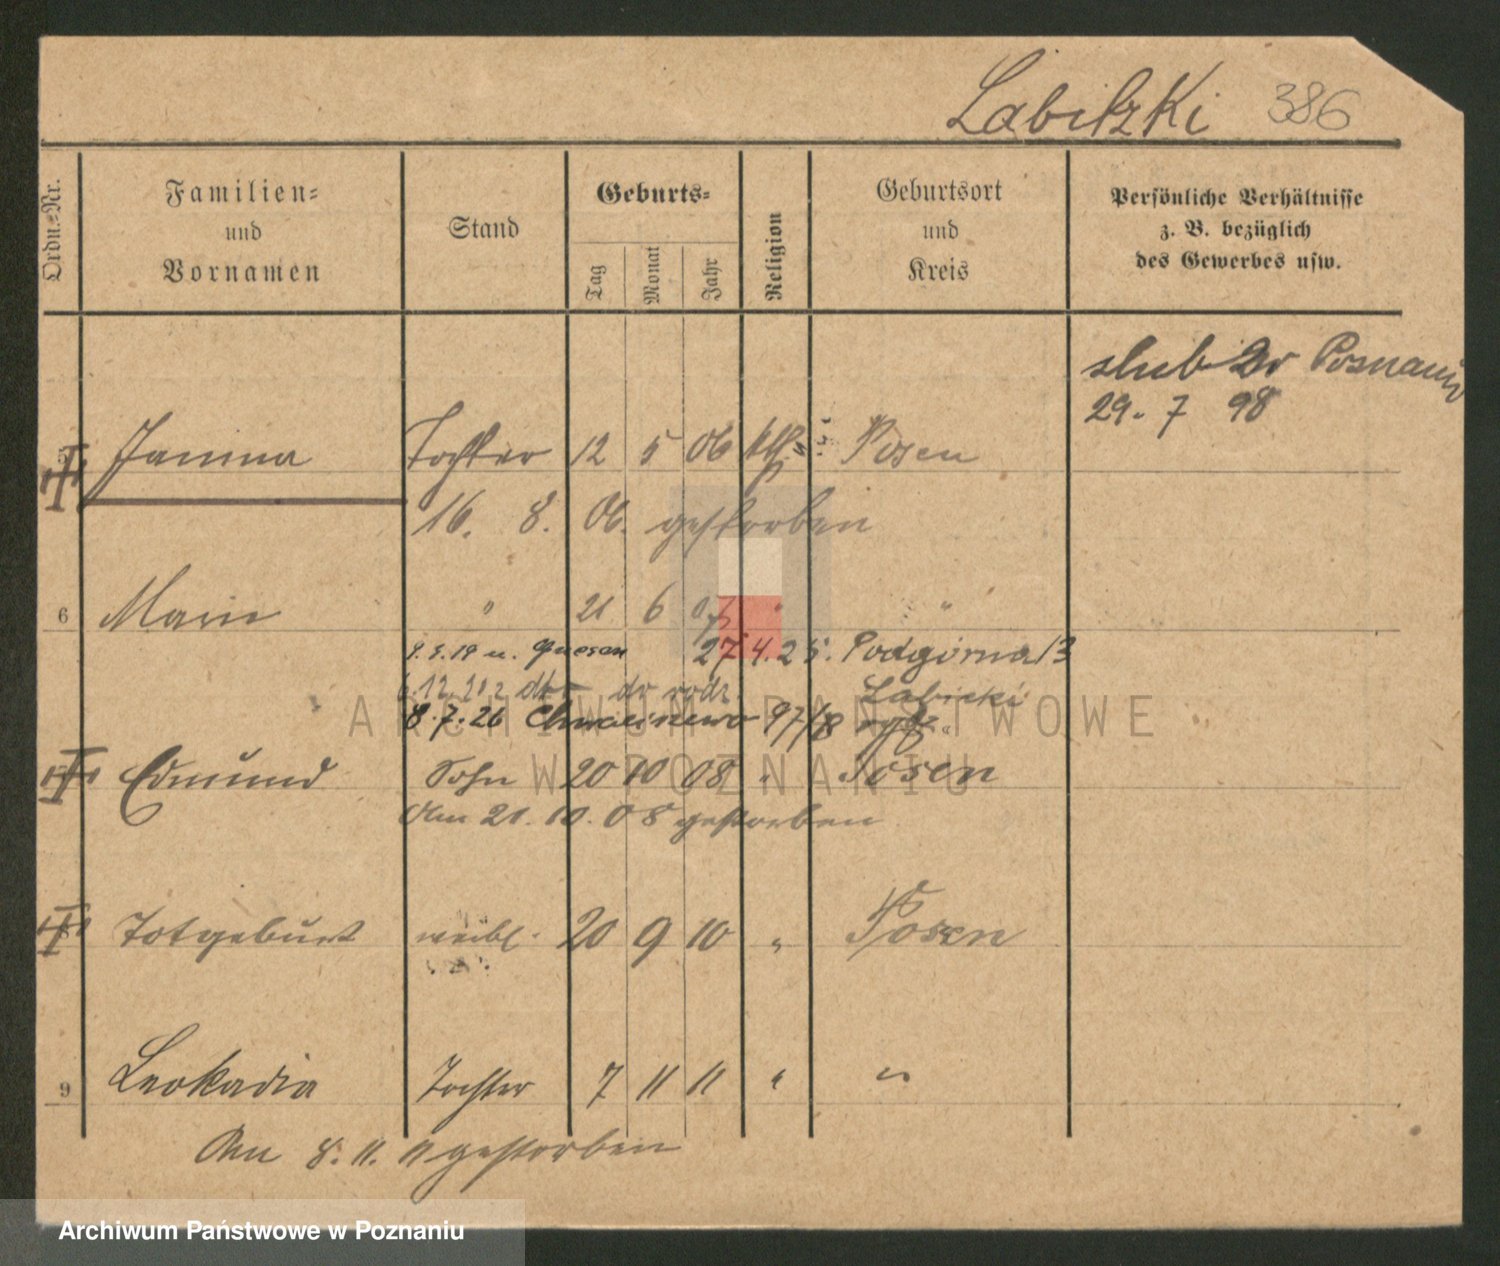 Labitzki 386
Ordn.-Nr.
Familien-
und
Vornamen
Stand
Geburts-
Tag
Monat
Jahr
Religion
Geburtsort
und
Kreis
Persönliche Verhältnisse
z. B. bezüglich
des Gewerbes usw.
slub Poznaniu
29. 7 98
Janina Tochter 12 5 06 kth. Posen
16. 8. 06. gestorben
6 Marie " 21 6 07 " "
u. Gnesen 27.4.25. Podgórna 13
6.12.21 do rodz. Labicki
8.7.26 97/8
Edmund Sohn 20 10 08 " Posen
Am 21. 10. 08 gestorben
Totgeburt weibl. 20 9 10 " Posen
9 Leokadia Tochter 7 11 11 " "
Am 8. 11. 11 gestorben
ARCHIWUM PAŃSTWOWE
W POZNANIU
Archiwum Państwowe w Poznaniu